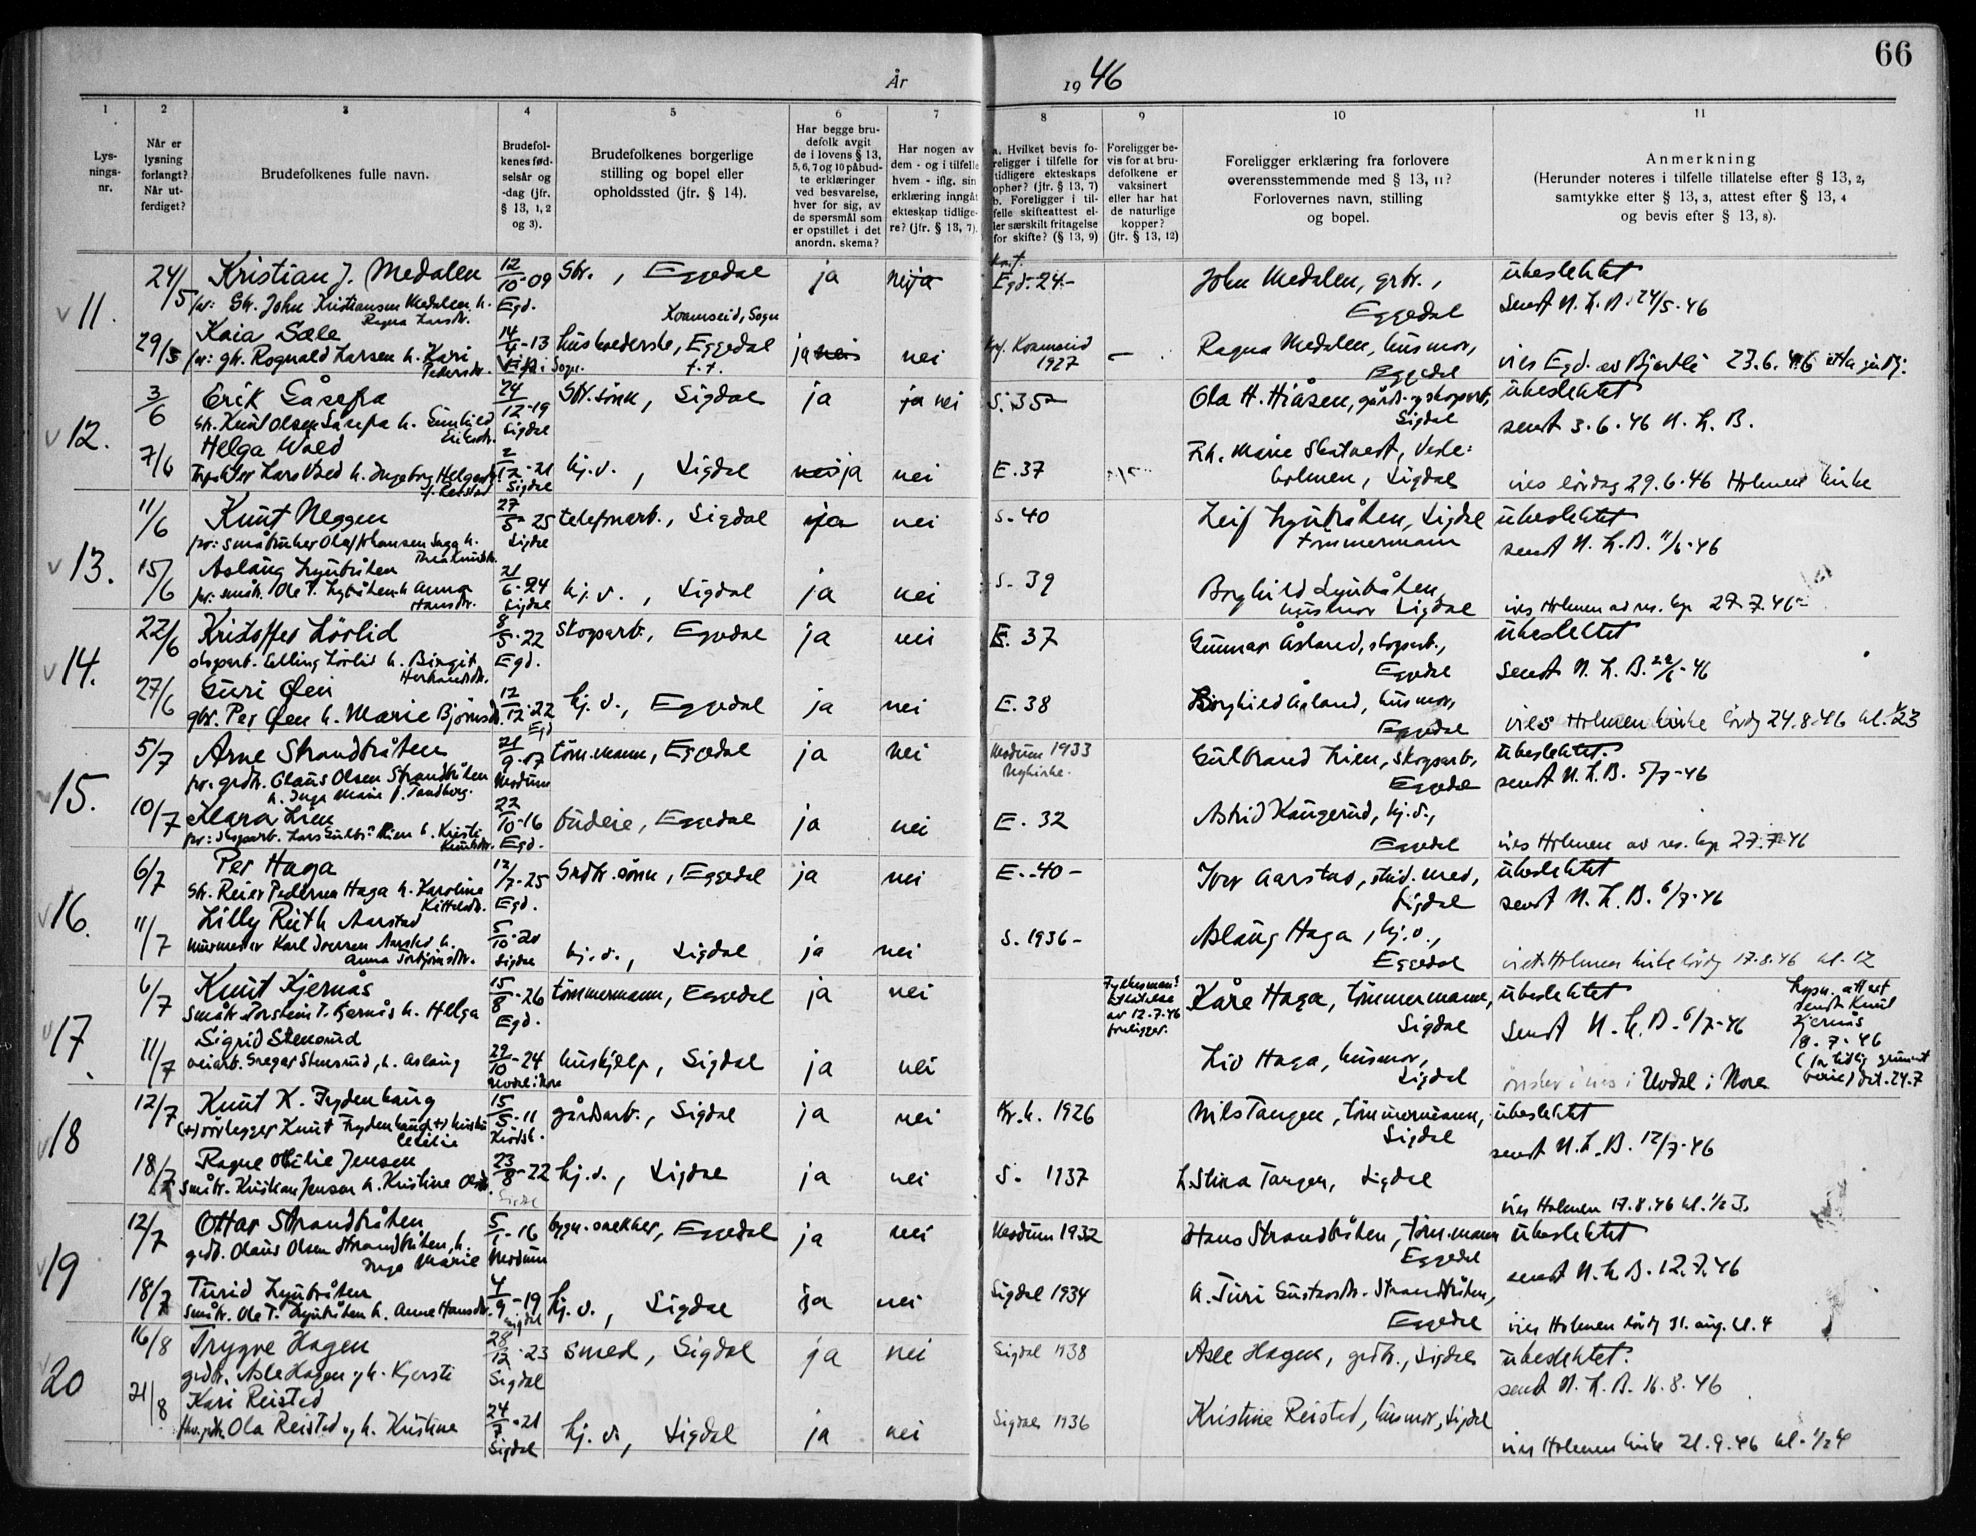 66
År 1946
1 2 3 4 5 6 7 8 9 10 11
Lysningsnr.
Når er lysning forlangt? Når utferdiget?
Brudefolkenes fulle navn.
Brudefolkenes fødselsår og -dag (jfr. § 13, 1, 2 og 3).
Brudefolkenes borgerlige stilling og bopel eller opholdssted (jfr. § 14).
Har begge brudefolk avgit de i lovens § 13, 5, 6, 7 og 10 påbudte erklæringer ved besvarelse, hver for sig, av de spørsmål som er opstillet i det anordn. skema?
Har nogen av dem - og i tilfelle hvem - iflg. sin erklæring inngått ekteskap tidligere? (jfr. § 13, 7).
a. Hvilket bevis foreligger i tilfelle for tidligere ekteskaps ophør? (jfr. § 13, 7) b. Foreligger i tilfelle skifteattest eller særskilt fritagelse for skifte? (§ 13, 9)
Foreligger bevis for at brudefolkene er vaksinert eller har hat de naturlige kopper? (jfr. § 13, 12)
Foreligger erklæring fra forlovere overensstemmende med § 13, 11? Forlovernes navn, stilling og bopel.
Anmerkning (Herunder noteres i tilfelle tillatelse efter § 13, 2, samtykke efter § 13, 3, attest efter § 13, 4 og bevis efter § 13, 8).
11. 24/5 Kristian J. Medalen 12/10-09 Gbr., Eggedal ja nei ja Egd. 24.- John Medalen, grbr., ubeslektet
for: Gbr. John Kristiansen Medalen h. Ragna Larsdtr. Egd. Eggedal Sendt N. L. B. 24/5-46
Kvamseid, Sogn
29/5 Kaia Sæle 14/4-13 husholderske, Eggedal ja nei nei Kvamseid 1927 — Ragna Medalen, husmor,
for: gbr. Rognald Larsen h. Kari Pedersdr. Vik i Sogn. f.t. Eggedal vies Egd. av Bjertli 23.6.46
12. 3/6 Erik Gåsefra 24/12-19 Gbr.sønn, Sigdal ja ja nei S. 35- Ola H. Hiåsen, gårds- og skogsarb., ubeslektet
Gbr. Knut Olsen Gåsefra h. Gunhild Eriksdr. Sigdal Sigdal sendt 3.6.46 N. L. B.
7/6 Helga Wold 2/12-21 hj.v., Sigdal nei ja nei E. 37 Frk. Marie Skatvedt, Vesleholmen, Sigdal
Lars Wold h. Ingeborg Helgesdr. f. Reistad Sigdal vies lördag 29.6.46 Holmen kirke
13. 11/6 Knut Neggen 27/5-25 telefonarb., Sigdal ja nei S. 40 Leif Lyubråten, Sigdal ubeslektet
for: småbruker Olaf Johansen Saga h. Thea Knutsdr. Sigdal tømmermann sendt N. L. B. 11/6-46
15/6 Aslaug Lyubråten 21/6-24 hj.v., Sigdal ja nei S. 39 Borghild Lyubråten,
for: småbr. Ole T. Lyubråten h. Anna Hansdr. Sigdal husmor Sigdal vies Holmen av res. kap. 27.7.46
14. 22/6 Kristoffer Lövlid 8/5-22 skogsarb., Eggedal ja nei E. 37 Gunnar Åsland, skogsarb., ubeslektet
skogsarb. Elling Lövlid h. Birgit Herbrandsdr. Egd. Eggedal Sendt N. L. B. 22/6-46
27/6 Guri Øen 12/12-22 hj.v., Eggedal ja nei E. 38 Borghild Åsland, husmor,
gbr. Per Øen h. Marie Bjørnsdr. Egd Eggedal vies Holmen kirke lördg 24.8.46 kl. 1/2 3
15. 5/7 Arne Strandbråten 21/9-07 töm.mann, Eggedal ja nei Modum 1933 Gulbrand Lien, skogsarb., ubeslektet.
for. grdb. Olaus Olsen Strandbråten h. Inga Marie f. Tandberg. Modum Nykirke. Eggedal sendt N. L. B. 5/7-46
10/7 Klara Lien 22/10-16 budeie, Eggedal ja nei E. 32 Astrid Kaugerud, hj.v.,
for: skogsarb. Lars Gulbr. Lien h. Kristi Knutsdr. Egd. Eggedal vies Holmen av res. kap. 27.7.46
16. 6/7 Per Haga 12/7-25 Grdbr. sönn, Eggedal ja nei E. 40- Iver Aarstad, stud. med, ubeslektet
Gbr. Reier Pedersen Haga h. Karoline Kittelsdr. Egd. Sigdal sendt N. L. B. 6/7-46
11/7 Lilly Ruth Aarstad 5/10-20 hj.v., Sigdal ja nei S. 1936- Aslaug Haga, hj.v.,
murmester Karl Iversen Aarstad h. Anna Torbjörnsdtr. Sigdal Eggedal viet Holmen kirke lördg 17.8.46 kl. 12
17. 6/7 Knut Kjernås 15/8-26 tömmermann, Eggedal ja nei Fylkesmann. tillatelse av 12.7.46 foreligger. Kåre Haga, tömmermann, ubeslektet
Småbr. Torstein T. Kjernås h. Helga Egd. Sigdal sendt N. L. B. 6/7-46
Lysn. attest sendt Knut Kjernås 18.7.46
11/7 Sigrid Stensrud 29/10-24 hushjelp, Sigdal ja nei Liv Haga, husmor,
veiarb. Gregar Stensrud, h. Aslaug Uvdal i Nore Sigdal ønsker å vies i Uvdal i Nore
18 12/7 Knut K. Frydenhaug 15/5-11 gårdsarb., Sigdal ja nei Kr.h. 1926 Nils Tangen, tömmermann, ubeslektet
(+) rörlegger Knut Frydenhaug (+) h. Cecilie Krödsh. Sigdal sendt N. L. B. 12/7-46
18/7 Ragne Otilie Jensen 23/8-22 hj.v., Sigdal ja nei S. 1937 L. Stina Tangen, Sigdal
Småbr. Kristian Jensen h. Kristine Olsdr. Sigdal vies Holmen 17.8.46 kl. 1/2 3.
19 12/7 Ottar Strandbråten 5/1-16 bygn.snekker, Eggedal ja nei Modum 1932 Hans Strandbråten, töm.mann ubeslektet
grdb. Olaus Olsen Strandbråten, h. Inga Marie Modum Eggedal sendt N. L. B. 12.7.46
18/7 Turid Lyubråten 4/9-19 hj.v., Sigdal ja nei Sigdal 1934 A. Turi Gustavsdr. Strandbråten,
Småbr. Ole T. Lyubråten h. Anne Hansdr. Sigdal Eggedal vies Holmen lördg 31. aug. kl. 4
20 16/8 Trygve Hagen 28/12-23 smed, Sigdal ja nei Sigdal 1938 Asle Hagen, grdbr., Sigdal ubeslektet.
grdbr. Asle Hagen og h. Kjersti Sigdal sendt N. L. B. 16.8.46
21/8 Kari Reistad 24/7-21 hj.v., Sigdal ja nei Sigdal 1936 Kristine Reistad, husmor, Sigdal
Ola Reistad og h. Kristine Sigdal vies Holmen kirke 21.9.46 kl. 1/2 4